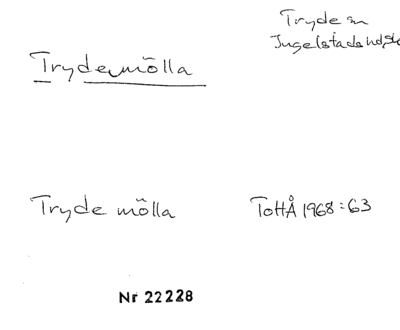 Tryde sn
Ingelstads hd, sk
Tryde mölla
Tryde mölla TottÅ 1968:63
Nr 22228